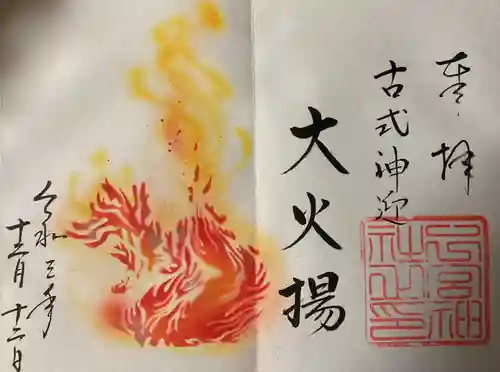 奉拝
古式神迎
大火揚
令和三年
十二月十二日